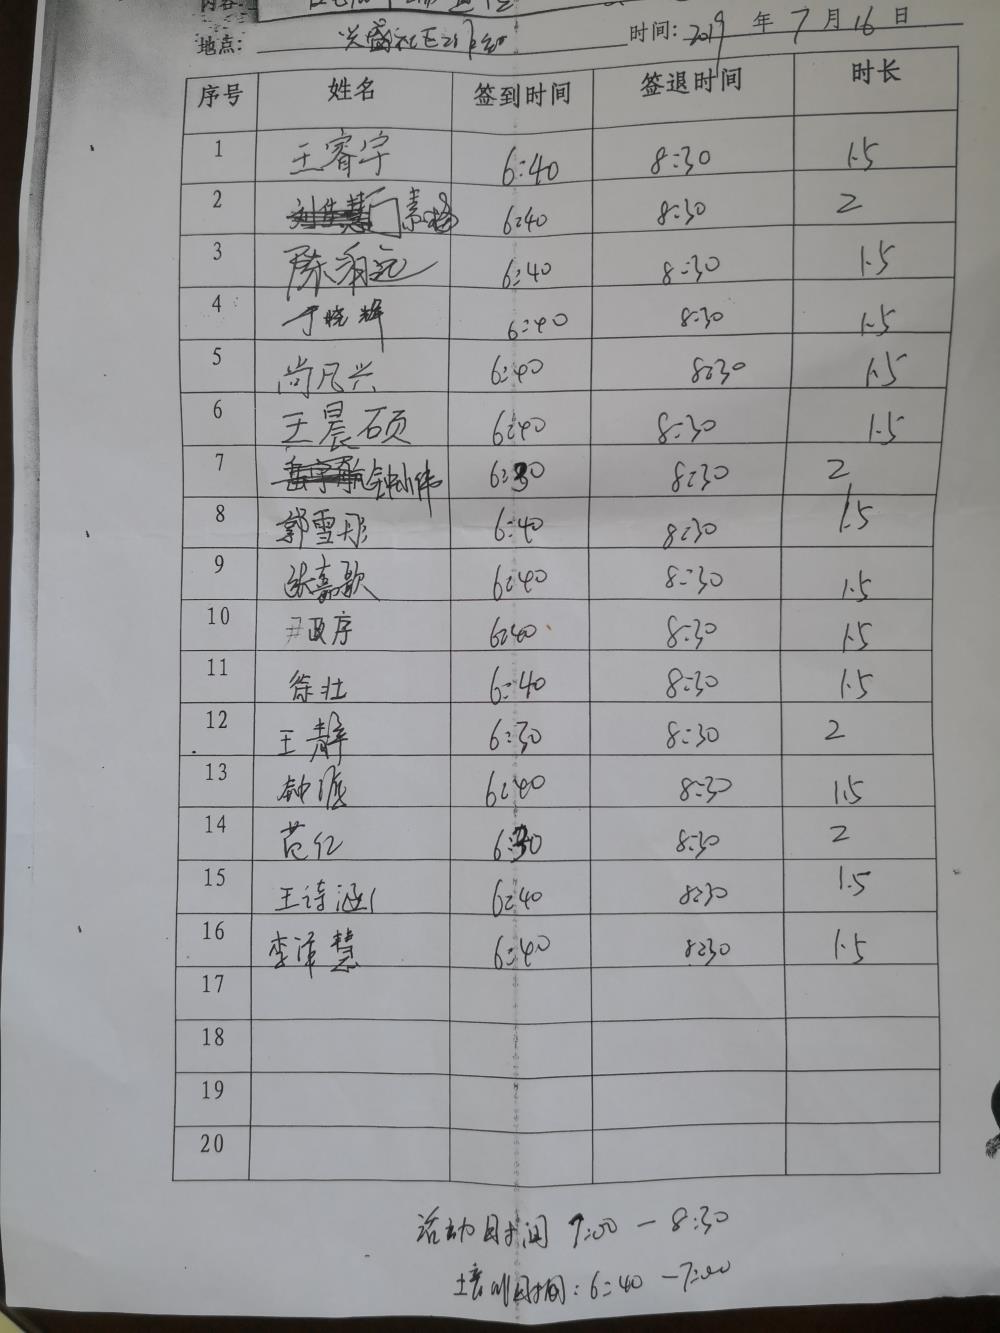 内容:
地点: 兴盛社区 时间: 2019 年 7 月 16 日
序号 姓名 签到时间 签退时间 时长
1 王睿宇 6:40 8:30 1.5
2 6:40 8:30 2
3 陈 6:40 8:30 1.5
4 于晓辉 6:40 8:30 1.5
5 尚凡兴 6:40 8:30 1.5
6 王晨硕 6:40 8:30 1.5
7 钟小伟 6:30 8:30 2
8 郭雪彤 6:40 8:30 1.5
9 张嘉歌 6:40 8:30 1.5
10 尹政序 6:40 8:30 1.5
11 徐壮 6:40 8:30 1.5
12 王静 6:30 8:30 2
13 钟 6:40 8:30 1.5
14 范红 6:30 8:30 2
15 王诗涵 6:40 8:30 1.5
16 李泽慧 6:40 8:30 1.5
17
18
19
20
活动时间 7:00－8:30
培训时间: 6:40－7:00